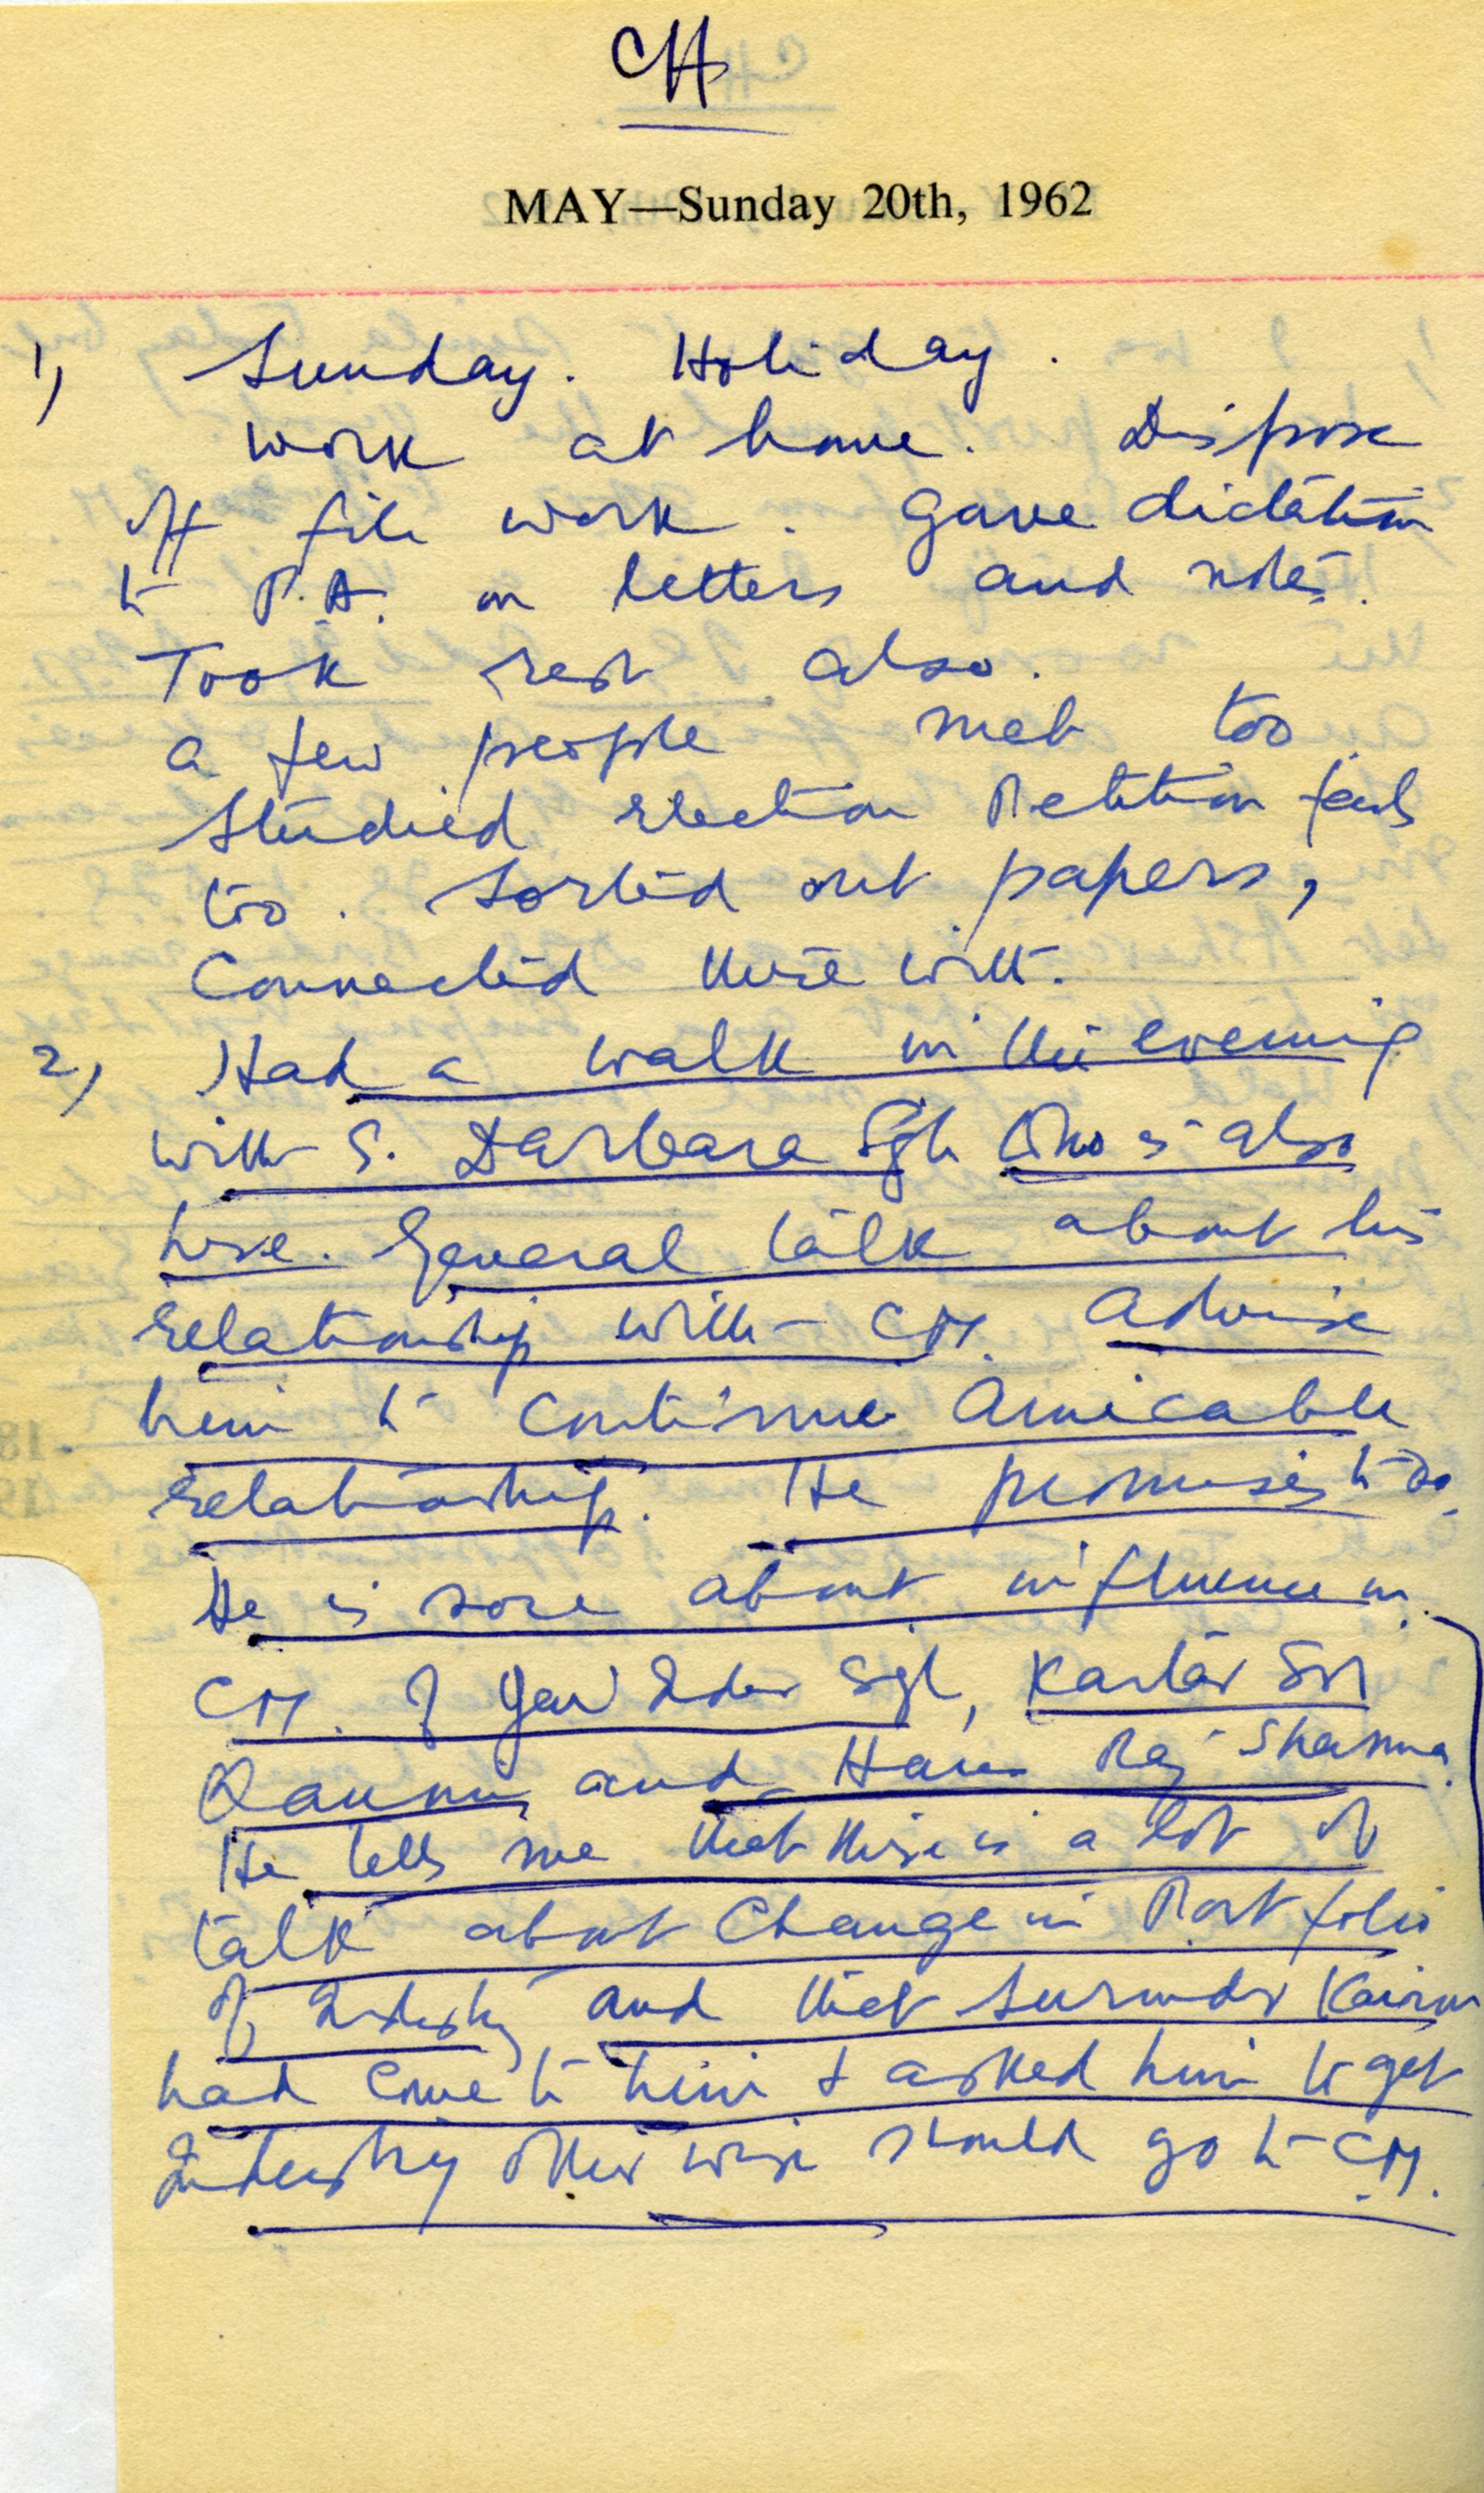 CH
MAY—Sunday 20th, 1962
1) Sunday. Holiday.
Work at home. Dispose
off file work. Gave dictation
to P.A. on letters and notes.
Took rest also.
a few people met too.
Studied Election Petition
too. Sorted out papers,
Connected there with.
2) Had a walk in the evening
with S. Darbara Sgh who is also
here. General talk about his
relationship with CM. Advise
him to continue amicable
relationship. He promises to do.
He is sore about influence on
CM. of Sgh, Kartar
and Hans Raj Sharma.
He tells me that there is a lot of
talk about Change in Portfolio
of Industry and that Surinder Kairon
had come to him & asked him to get
Industry otherwise should go to CM.